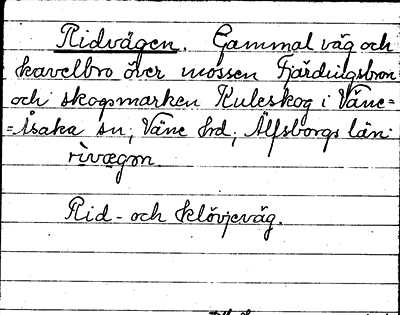 Ridvägen. Gammal väg och
kavelbro över mossen Fjärdingsbron
och skogsmarken Kuleskog i Väne=
=Åsaka sn, Väne hd, Älfsborgs län.
rivægən.
Rid- och klövjeväg.